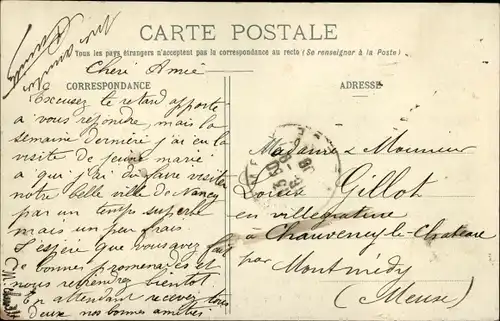 CARTE POSTALE
Tous les pays étrangers n'acceptent pas la correspondance au recto (Se renseigner à la Poste)
CORRESPONDANCE
Cheri Amie
Excusez le retard apporte
a vous repondre, mais la
semaine derniére j'ai eu la
visite de jeune marié
a qui j'ai du faire visiter
notre belle ville de Nancy
par un temps superbe
mais un peu frais
J'espère que vous avez fait
de bonnes promenades et
nous reviendrez bientot
En attendant recevez tous
deux nos bonnes amitiés
ADRESSE
Madame & Monsieur
Louis Gillot
en villegiature
à Chauvency-le-Chateau
par Montmédy
(Meuse)